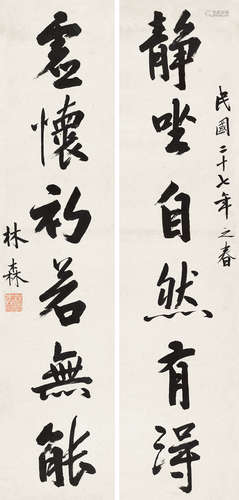 民國二十七年之春
静坐自然有得
虚懷初若無能
林森